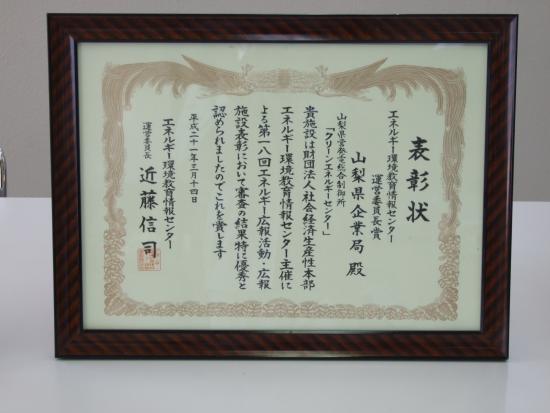 表彰状
エネルギー環境教育情報センター
運営委員長賞
山梨県企業局 殿
山梨県営発電総合制御所
「クリーンエネルギーセンター」
貴施設は財団法人社会経済生産性本部
エネルギー環境教育情報センター主催に
よる第一八回エネルギー広報活動・広報
施設表彰において審査の結果特に優秀と
認められましたのでこれを賞します
平成二十一年三月十四日
エネルギー環境教育情報センター
運営委員長 近藤信司